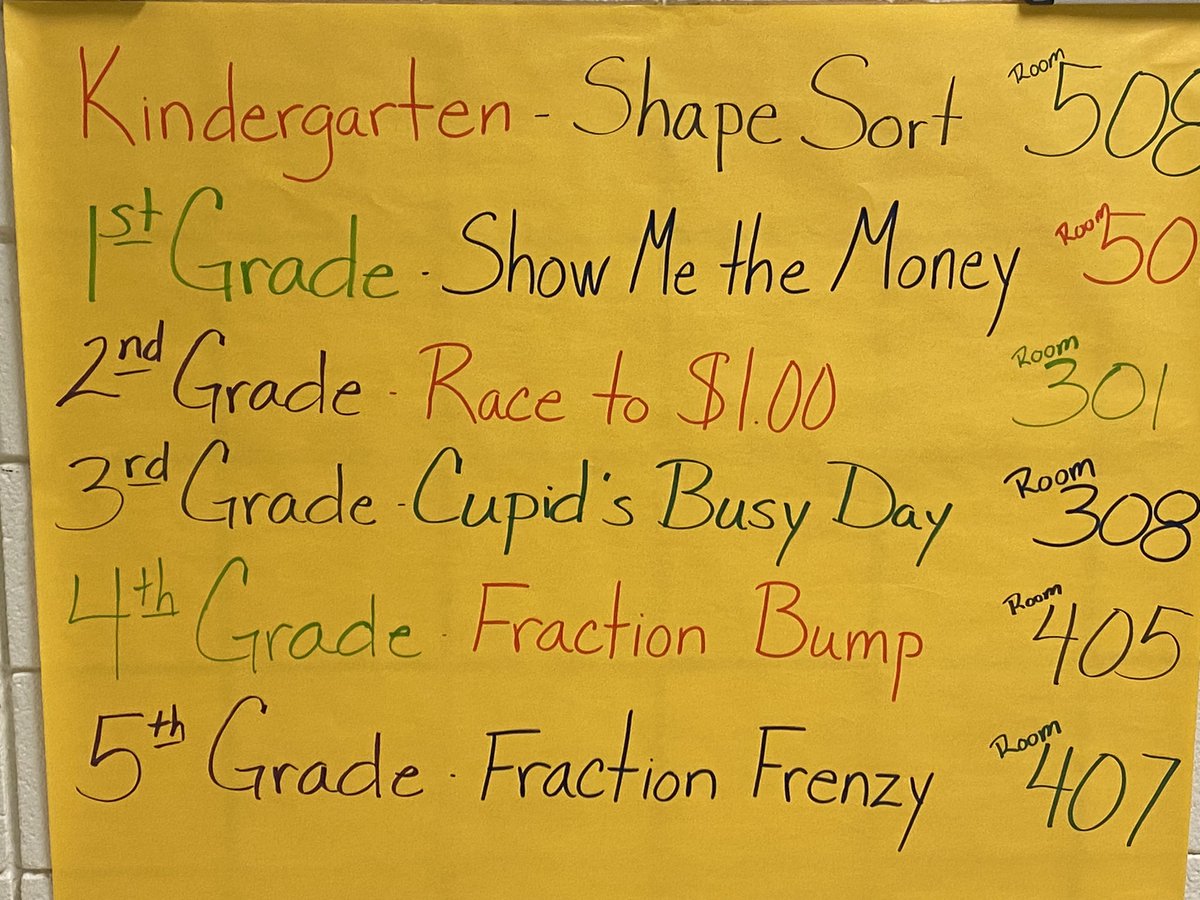 Kindergarten - Shape Sort Room 508
1st Grade - Show Me the Money Room 50
2nd Grade - Race to $1.00 Room 301
3rd Grade - Cupid's Busy Day Room 308
4th Grade - Fraction Bump Room 405
5th Grade - Fraction Frenzy Room 407